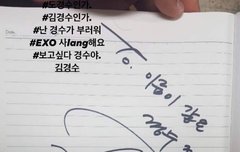 #도경수인가.
#김경수인가.
#난 경수가 부러워
#EXO 사lang해요
#보고싶다 경수야.
김경수
To. 이름이 같은
경수